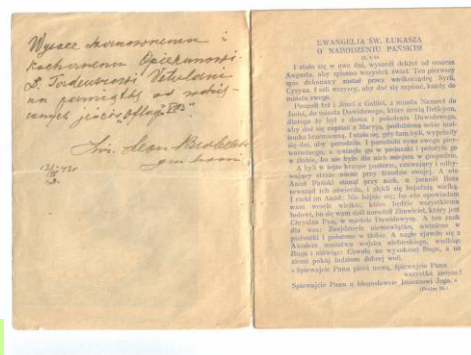 Wysoce szanownemu i
kochanemu Opiekunowi
D. Tadeuszowi Vetulani
na pamiątkę od
jeńców "Oflag
Leon
EWANGELIA ŚW. ŁUKASZA
O NARODZENIU PAŃSKIM
I stało się w owe dni, wyszedł dekret od cesarza
Augusta, aby spisano wszystek świat. Ten pierwszy
spis dokonany został przez wielkorządcę Syrii,
Cyryna. I szli wszyscy, aby dać się zapisać, każdy do
miasta swego.
Poszedł też i Józef z Galilei, z miasta Nazaret do
Judei, do miasta Dawidowego, które zowią Betlejem,
dlatego że był z domu i pokolenia Dawidowego,
aby dać się zapisać z Maryją, poślubioną sobie mał-
żonką brzemienną. I stało się, gdy tam byli, wypełniły
się dni, aby porodziła. I porodziła syna swego pier-
worodnego, a uwinęła go w pieluszki i położyła go
w żłobie, bo nie było dla nich miejsca w gospodzie.
A byli w tejże krainie pasterze, czuwający i odby-
wający straże nocne przy trzodzie swojej. A oto
Anioł Pański stanął przy nich, a jasność Boża
zewsząd ich oświeciła, i zlękli się bojaźnią wielką.
I rzekł im Anioł: Nie bójcie się; bo oto opowiadam
wam wesele wielkie, które będzie wszystkiemu
ludowi, bo się wam dziś narodził Zbawiciel, który jest
Chrystus Pan, w mieście Dawidowym. A ten znak
dla was: Znajdziecie niemowlątko, uwinione w
pieluszki i położone w żłobie. A nagle zjawiło się z
Aniołem mnóstwo wojska niebieskiego, wielbiąc
Boga i mówiąc: Chwała na wysokości Bogu, a na
ziemi pokój ludziom dobrej woli.
« Śpiewajcie Panu pieśń nową, śpiewajcie Panu
wszystka ziemio!
Śpiewajcie Panu a błogosławcie Imieniowi Jego. »